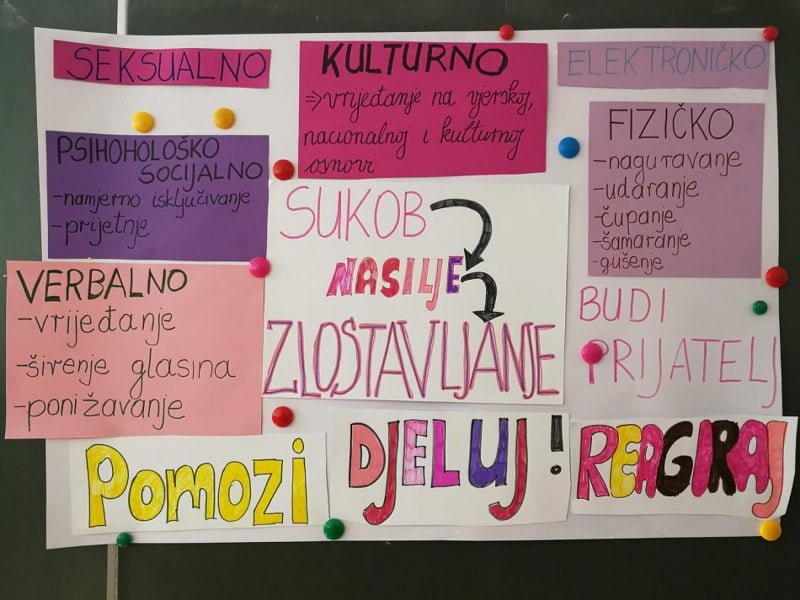 SEKSUALNO
KULTURNO
⇒vrijeđanje na vjerskoj,
nacionalnoj i kulturnoj
osnovi
ELEKTRONIČKO
PSIHOHOLOŠKO
SOCIJALNO
-namjerno isključivanje
-prijetnje
FIZIČKO
-naguravanje
-udaranje
-čupanje
-šamaranje
-gušenje
SUKOB
NASILJE
ZLOSTAVLJANJE
VERBALNO
-vrijeđanje
-širenje glasina
-ponižavanje
BUDI
PRIJATELJ
POMOZI
DJELUJ!
REAGIRAJ